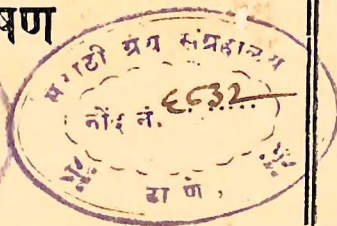 षण
मराठी ग्रंथ संग्रहालय
नोंद नं. ६८३२
ठाणें,